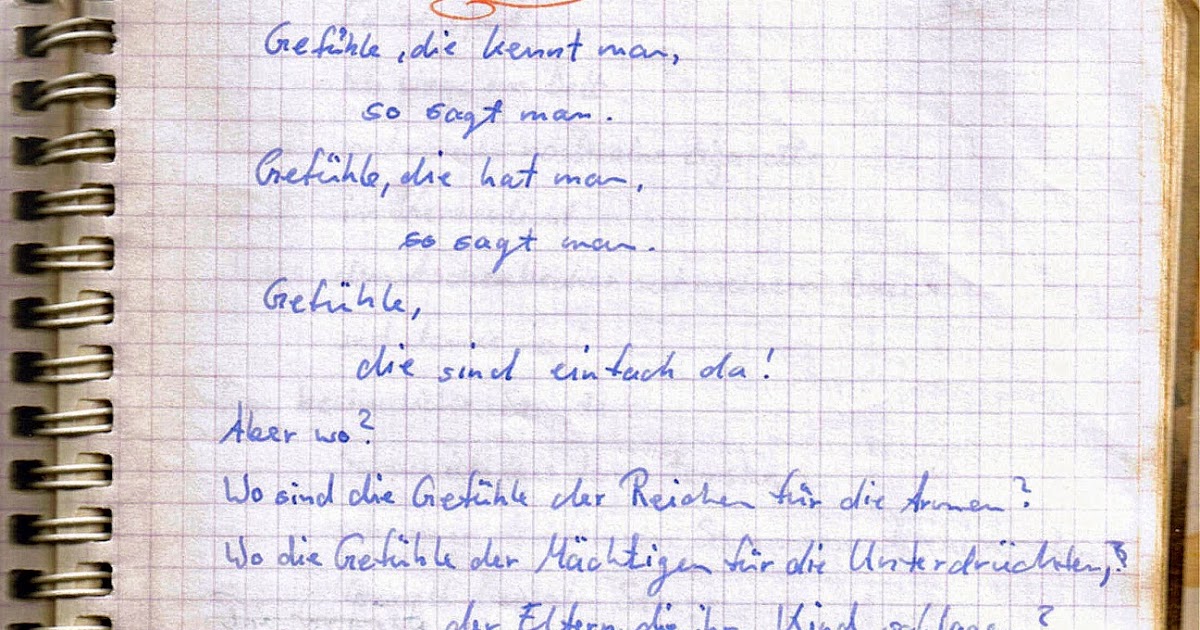 Gefühle, die kennt man,
so sagt man.
Gefühle, die hat man,
so sagt man.
Gefühle,
die sind einfach da!
Aber wo?
Wo sind die Gefühle der Reichen für die Armen?
Wo die Gefühle der Mächtigen für die Unterdrückten,?
der Eltern, die ihr Kind schlagen?